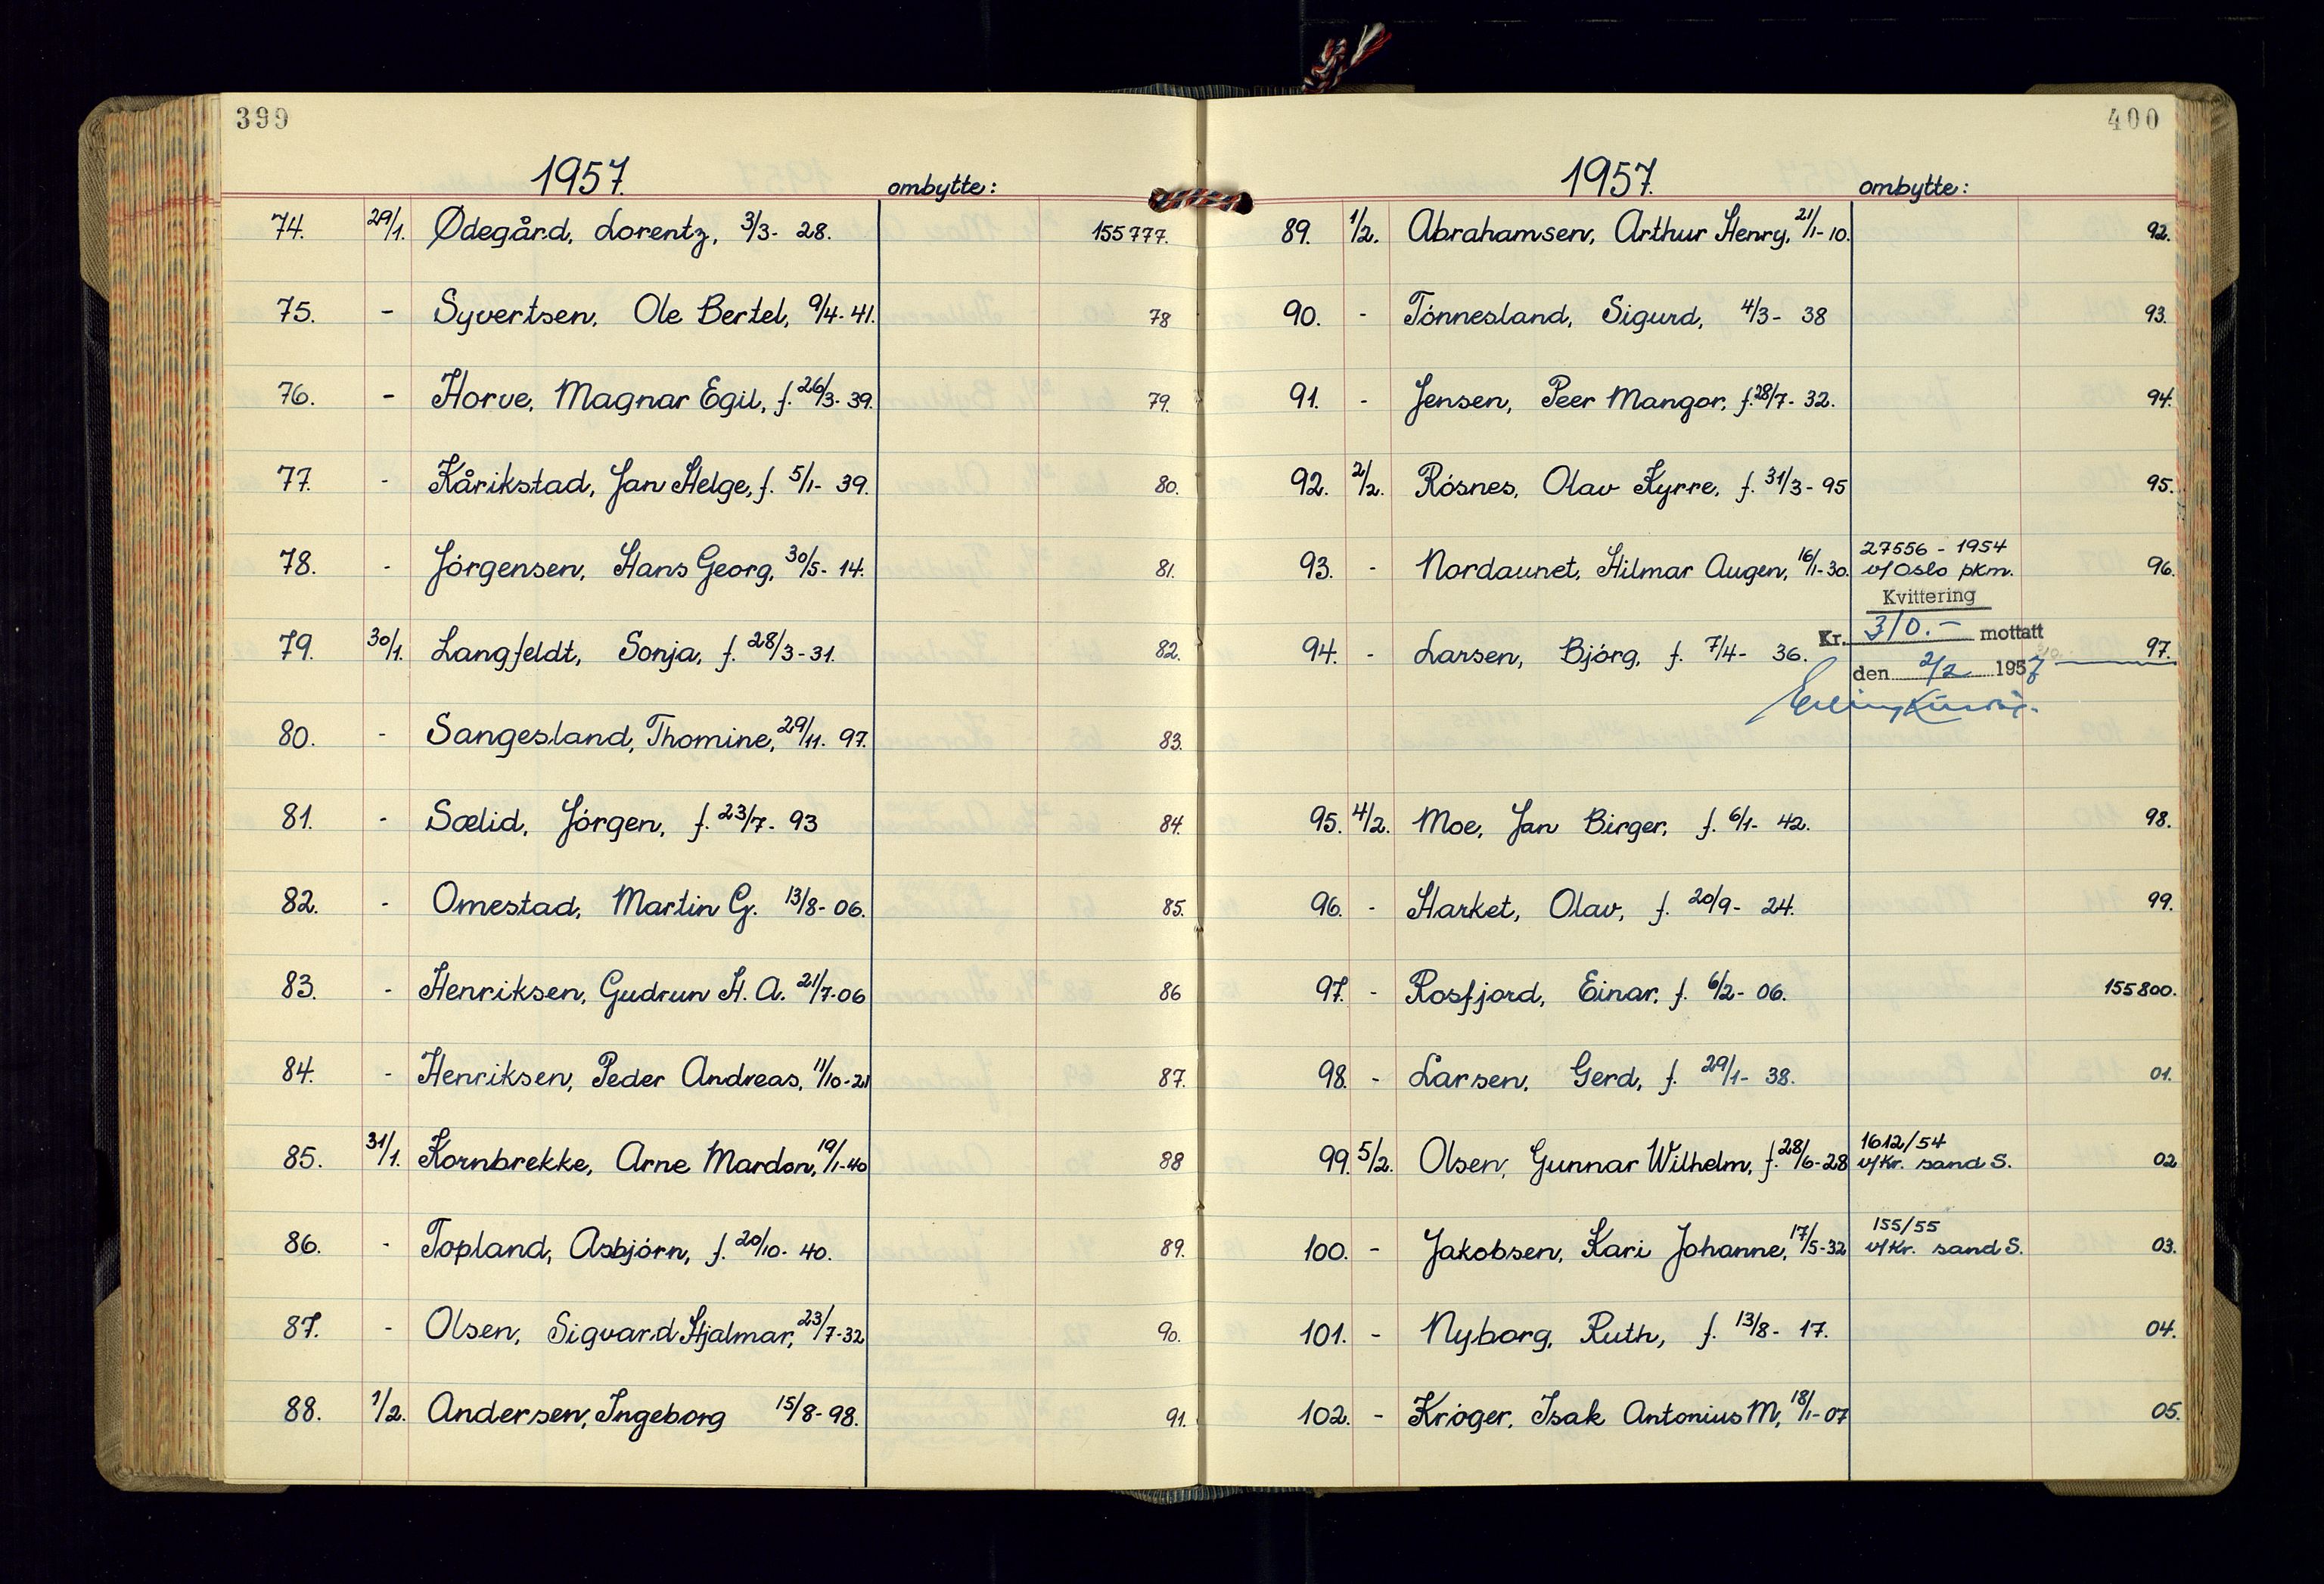 399
1957. ombytte:
74. 29/1. Ødegård, Lorentz, 3/3- 28. 155777.
75. - Syvertsen, Ole Bertel, 9/4- 41. 78
76. - Horve, Magnar Egil, f. 26/3- 39. 79.
77. - Kårikstad, Jan Helge, f. 5/1- 39. 80.
78. - Jórgensen, Hans Georg, 30/5- 14. 81.
79. 30/1. Langfeldt, Sonja, f. 28/3-31. 82.
80. - Sangesland, Thomine, 29/11. 97. 83.
81. - Sælid, Jórgen, f. 23/7- 93 84.
82. - Omestad, Martin G. 13/8- 06. 85.
83. - Henriksen, Gudrun H. A. 21/7-06 86
84. - Henriksen, Peder Andreas, 11/10-21 87.
85. 31/1. Kornbrekke, Arne Mardon, 19/1-40 88
86. - Topland, Asbjórn, f. 20/10- 40. 89.
87. - Olsen, Sigvard Hjalmar, 23/7-32 90.
88. 1/2. Andersen, Ingeborg 15/8-98. 91.
400
1957. ombytte:
89. 1/2. Abrahamsen, Arthur Henry, 21/1- 10. 92.
90. - Tónnesland, Sigurd, 4/3- 38 93.
91. - Jensen, Peer Mangor, f. 28/7- 32. 94.
92. 2/2. Rósnes, Olav Kyrre, f. 31/3- 95 95.
27556 - 1954
93. - Nordaunet, Hilmar Augen, 16/1-30. v/Oslo pkm. 96.
Kvittering
Kr. 310.- mottatt
94. - Larsen, Bjórg, f. 7/4- 36. 97.
den 2/2 1957
95. 4/2. Moe, Jan Birger, f. 6/1- 42. 98.
96. - Harket, Olav, f. 20/9- 24. 99.
97. - Rosfjord, Einar, f. 6/2- 06. 155800.
98. - Larsen, Gerd, f. 29/1- 38. 01.
1612/54
99. 5/2. Olsen, Gunnar Wilhelm, f. 28/6-28 v/Kr. sand S. 02
155/55
100. - Jakobsen, Kari Johanne, 17/5-32 v/Kr. sand S. 03.
101. - Nyborg, Ruth, f. 13/8- 17. 04.
102. - Króger, Isak Antonius M, 18/1-07 05.